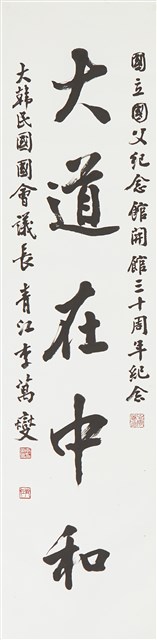 國立國父紀念館開館三十周年紀念
大道在中和
大韓民國國會議長 青江 李萬燮